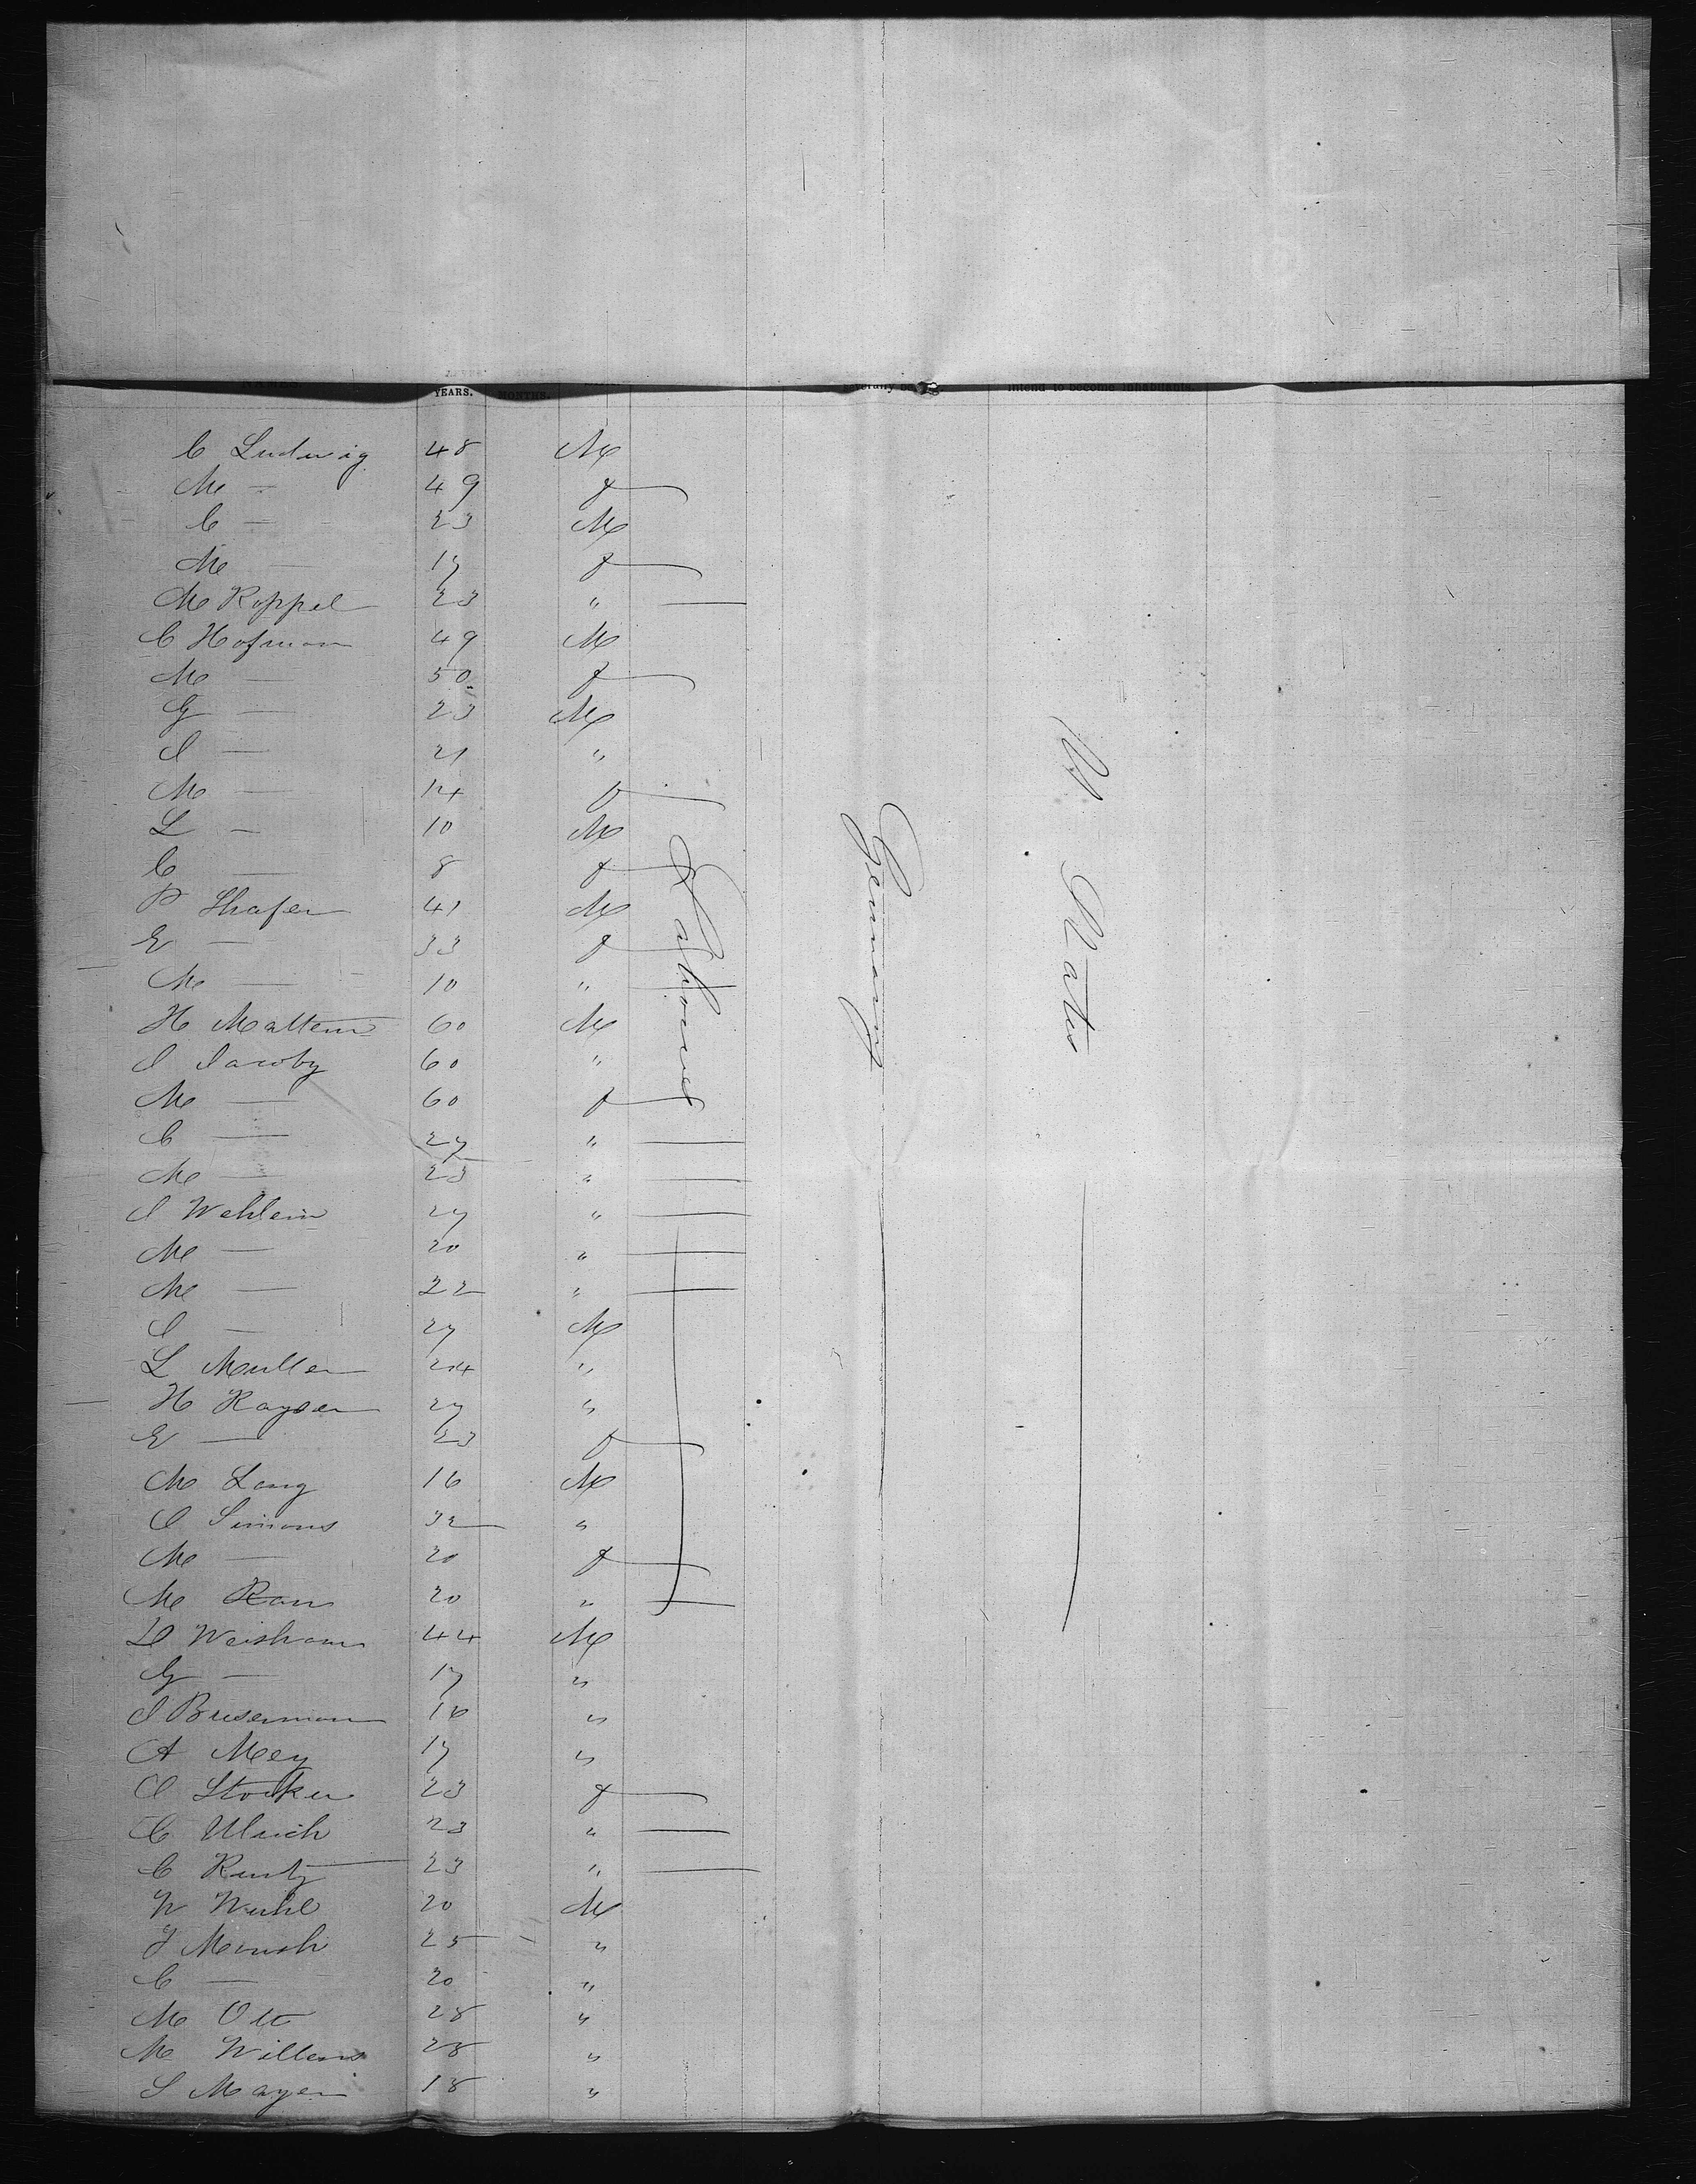 YEARS. MONTHS. intend to become inhabitants.
C Ludwig 48 M
M — 49 f
C — 23 M
M — 17 f
M Koppel 23 "
C Hofman 49 M
M — 50 f
G — 23 M
I — 21 "
M — 14 f
L — 10 M
C — 8 f
P Shafer 41 M
E — 33 f
M — 10 "
H Mattern 60 M
I Jacoby 60 "
M — 60 f
C — 27 "
M — 23 "
I Wehlein 27 "
M — 20 "
M — 22 "
I — 27 M
L Muller 24 "
H Kayser 27 "
E — 23 f
M Lang 16 M
I Simons 32 "
M — 20 f
M Rau 20 "
D Weisham 44 M
G — 17 "
I Buserman 16 "
A Mey 17 "
I Stocker 23 f
C Ulrich 23 "
C Kurtz 23 "
N Wuhl 20 M
J Mensh 25 "
C — 20 "
M Ott 28 "
M Willems 28 "
S Mayer 18 "
Labourer
Germany
U States